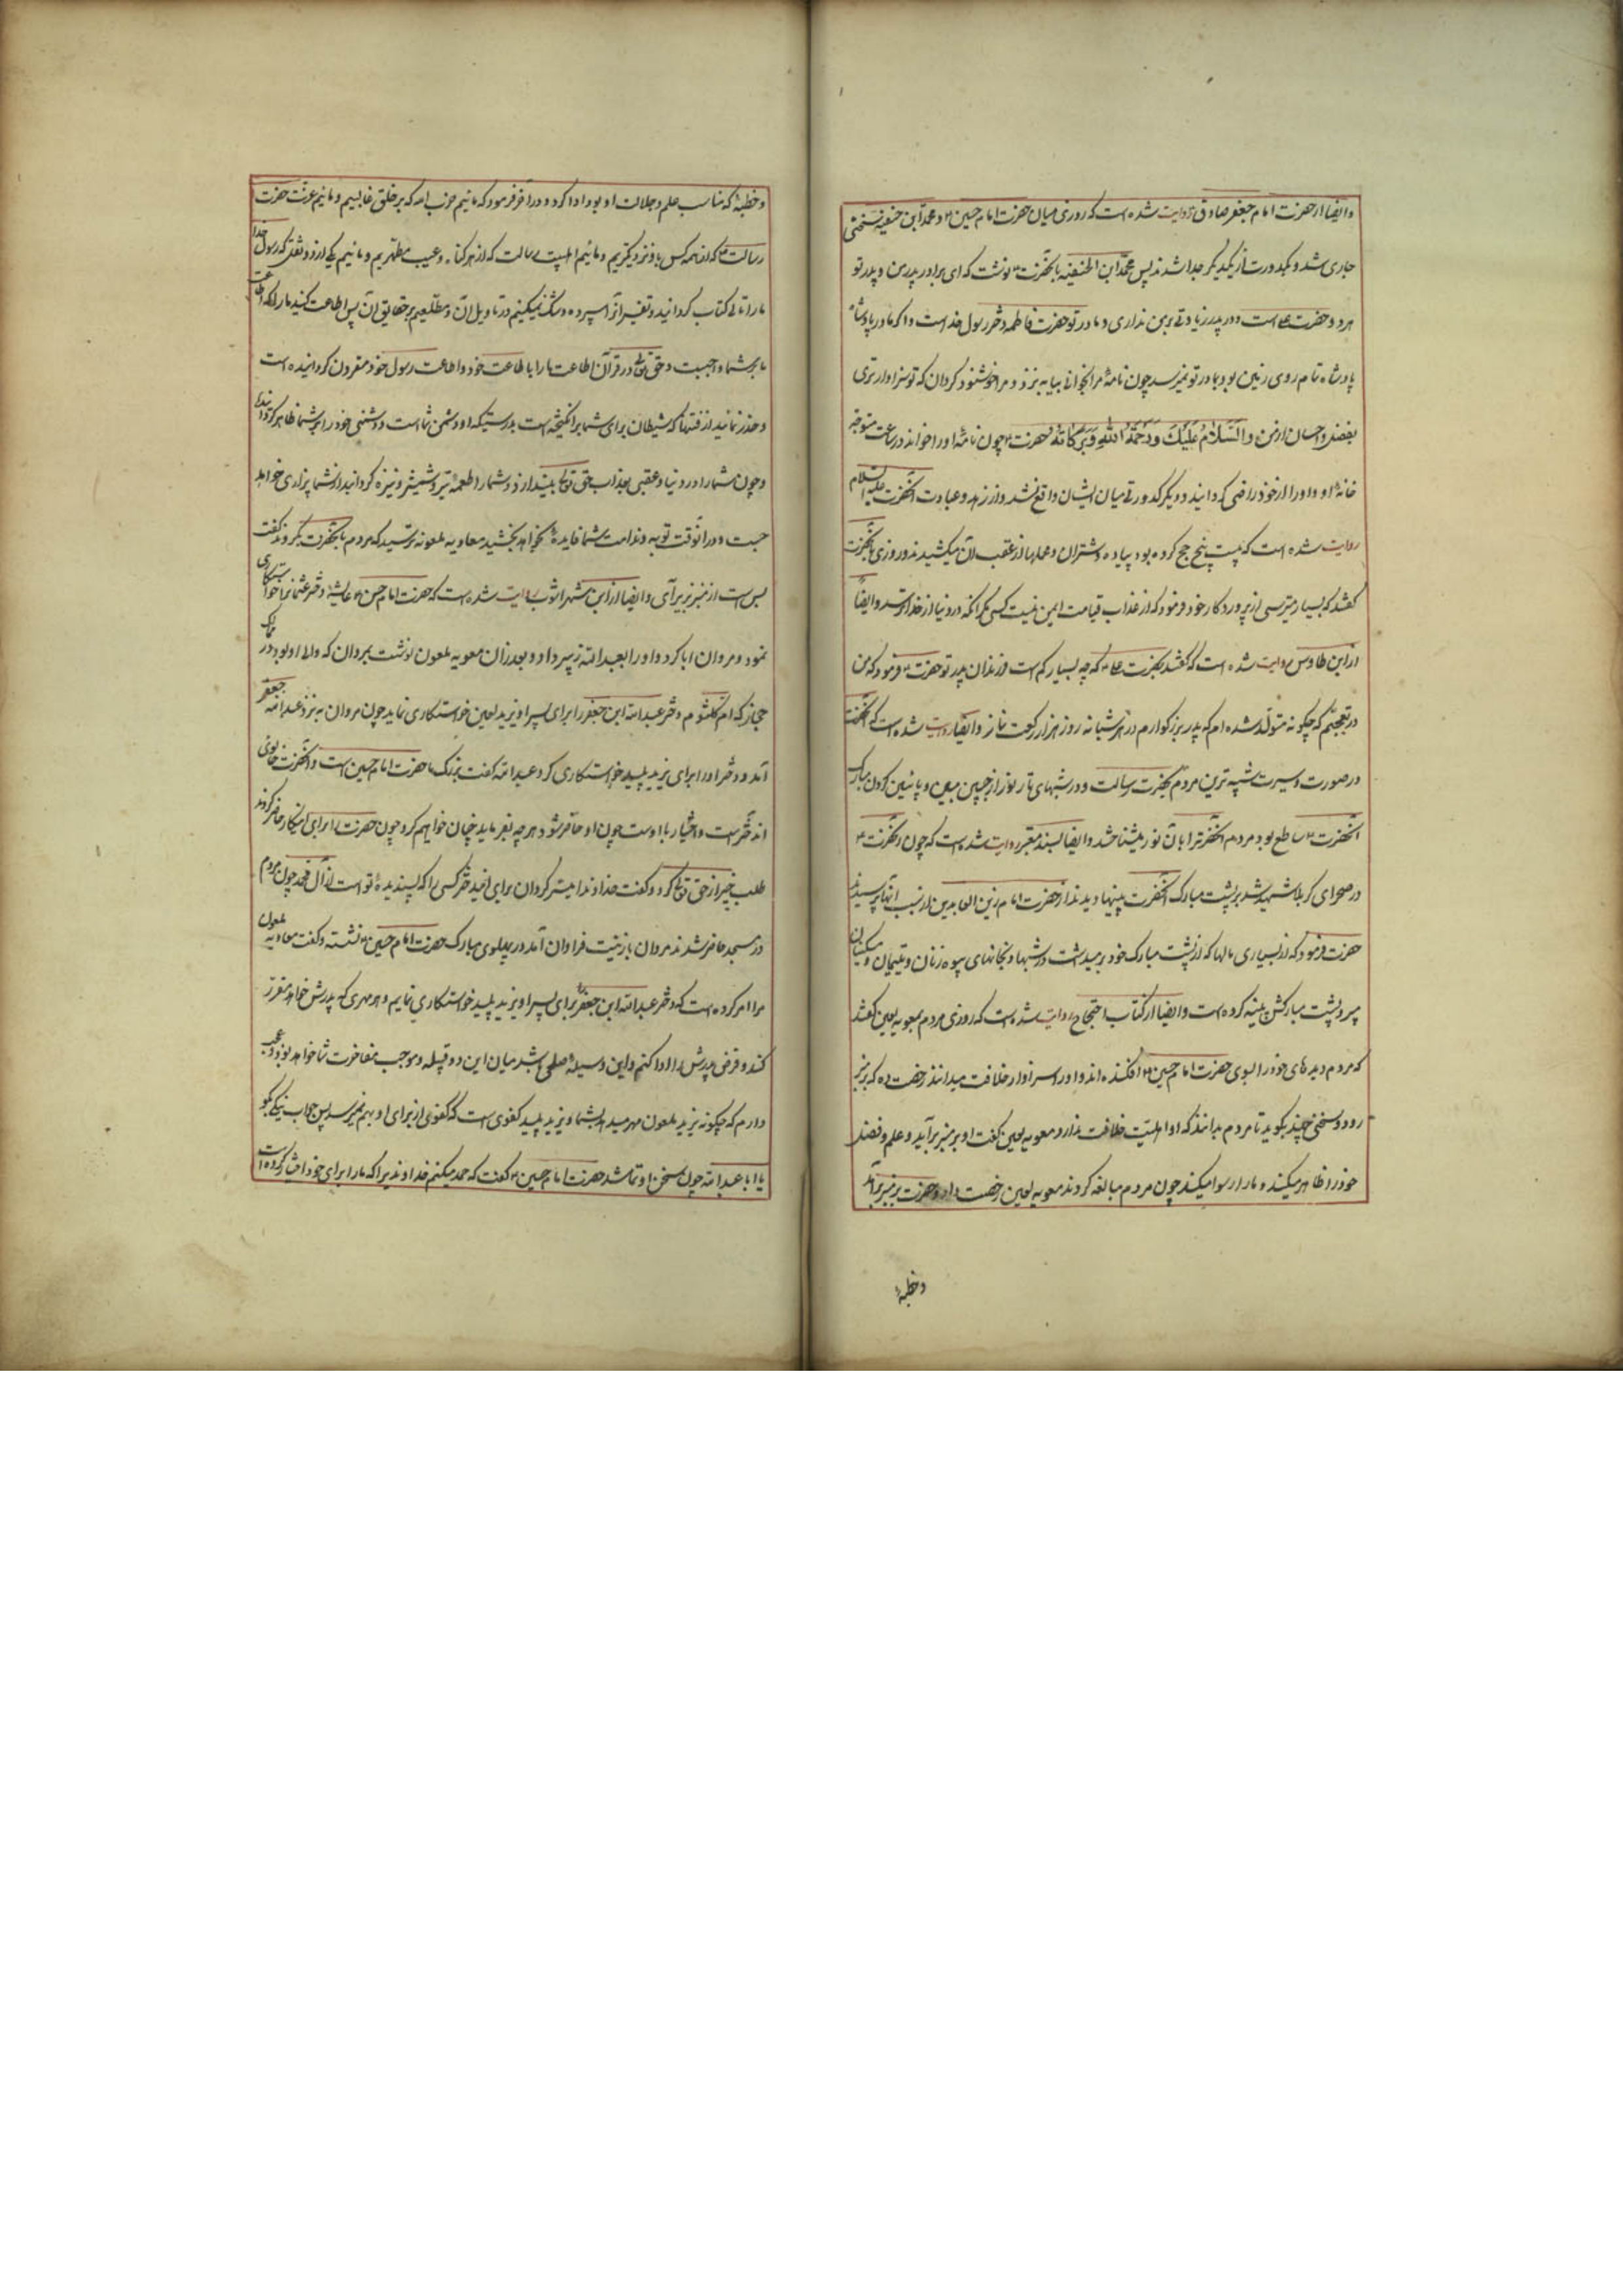 وایضا از حضرت امام جعفر صادق روایت شده است که روزی میان حضرت امام حسین ۴ و محمد ابن حنفیه سخنی
جاری شد و بکدورت از یکدیگر جدا شدند پس محمد ابن الحنفیه بآنحضرت ۴ نوشت که ای برادر پدر من و پدر تو
هر دو حضرت علی است و در پدر زیادتی بر من نداری و مادر تو حضرت فاطمه دختر رسول خداست و اگر مادر پادشاه
پادشاه تمام روی زمین بود بمادر تو نمیرسد چون نامهٔ مرا بخوانی بیا به نزد و مرا خوشنود گردان که تو سزاوارتری
بفضل و احسان از من وَالسَّلامُ عَلَیْکَ وَرَحْمَةُ اللهِ وَبَرَکَاتُهُ حضرت ۴ چون نامهٔ او را خواند در ساعت متوجه
خانهٔ او و او را از خود راضی گردانید و دیگر کدورتی میان ایشان واقع نشد و از زهد و عبادت آنحضرت علیه السلام
روایت شده است که بیست پنج حج کرده بود پیاده و شتران و محملها از عقب آن میکشیدند و روزی بآنحضرت
گفتند که بسیار میترسی از پروردگار خود فرمود که از عذاب قیامت ایمن نیست کسی مگر آنکه در دنیا از خدا ترسد وایضاً
از ابن طاوس روایت شده است که گفتند بحضرت که چه بسیار کم است فرزندان پدر تو حضرت ۴ فرمود که من
در تعجبم که چگونه متولد شده ام که پدر بزرگوارم در هر شبانه روز هزار رکعت نماز وایضا روایت شده است که آنحضرت
در صورت و سیرت شبیه ترین مردم بحضرت رسالت و در شبهای تار نور از جبین مبین و پائین گردن مبارک
آنحضرت ۴ ساطع بود مردم آنحضرترا بان نور میشناختند وایضا بسند معتبر روایت شده است که چون آنحضرت ۴
در صحرای کربلا شهید شد بر پشت مبارک آنحضرت پینها دیدند از حضرت امام زین العابدین از سبب آنها پرسیدند
حضرت فرمود که از بسیاری مالها که از پشت مبارک خود برمیداشت در شبها و بخانهای بیوه زنان و یتیمان و مسکینان
میبرد پشت مبارکش پینه کرده است وایضا از کتاب احتجاج روایت شده است که روزی مردم بمعویه لعین گفتند
که مردم دیدهای خود را بسوی حضرت امام حسین ۴ افکنده اند و او را سزاوار خلافت میدانند رخصت ده که بر منبر
رود و سخنی چند بگوید تا مردم بدانند که او اهلیت خلافت ندارد معویه لعین گفت او بر منبر برآید و علم و فضل
خود را ظاهر میکند و ما را رسوا میکند چون مردم مبالغه کردند معویه لعین رخصت داد و حضرت بر منبر برآمد
وخطبهٔ
وخطبهٔ که مناسب علم و جلالت او بود ادا کرد و در آخر فرمود که مائیم حزب الله که بر خلق غالبیم و مائیم عترت حضرت
رسالت ۴ که از همه کس باو نزدیکتریم و مائیم اهلبیت رسالت که از هر گناه و عیب مطهریم و مائیم یکی از دو ثقل که رسول خدا
ما را تالی کتاب گردانید و تفسیر آنرا سپرده و شک نمیکنیم در تأویل آن و مطلعیم بر حقایق آن پس اطاعت کنید ما را که اطاعت
ما بر شما واجبست و حق تعالی در قرآن اطاعت ما را باطاعت خود و اطاعت رسول خود مقرون گردانیده است
و حذر نمائید از فتنهائی که شیطان برای شما برانگیخته است بدرستیکه او دشمن شماست و دشمنی خود را بر شما ظاهر گردانیده
و چون شما را در دنیا و عقبی بعذاب حق تعالی بیندازد و شما را طعمهٔ تیر و شمشیر و نیزه گرداند از شما بیزاری خواهد
جست و در آنوقت توبه و ندامت شما فایدهٔ نخواهد بخشید معاویه ملعونه ترسید که مردم بآنحضرت بگروند گفت
بس است از منبر بزیر آی وایضا از ابن شهر اشوب روایت شده است که حضرت امام حسن ۴ عایشهٔ دختر عثمانرا خواستگاری
نمود و مروان ابا کرد و او را بعبدالله زبیر داد و بعد از آن معویه ملعون نوشت بمروان که والی او بود در
حجاز که ام کلثوم دختر عبدالله ابن جعفر را برای پسر او یزید لعین خواستگاری نماید چون مروان به نزد عبدالله جعفر
آمد و دختر او را برای یزید پلید خواستگاری کرد عبدالله گفت بزرگ ما حضرت امام حسین است و آنحضرت خالوی
این دختر است و اختیار با اوست چون او حاضر شود هر چه بفرماید چنان خواهم کرد چون حضرت را برای اینکار حاضر کردند
طلب خیر از حق تعالی کرد و گفت خداوندا میسر گردان برای این دختر کسی را که پسندیدهٔ تو است از آل محمد چون مردم
در مسجد حاضر شدند مروان با زینت فراوان آمد در پهلوی مبارک حضرت امام حسین ۴ نشسته و گفت معاویه ملعون
مرا امر کرده است که دختر عبدالله ابن جعفر برای پسر او یزید پلید خواستگاری نمایم و هر مهری که پدرش خواهد مقرر
کند و قرض پدرش را ادا کنم و این وسیلهٔ صلحی باشد میان این دو قبیله و موجب مفاخرت شما خواهد بود و عجب
دارم که چگونه یزید ملعون مهر میدهد بشما و یزید پلید کفوی است که کفوی از برای او بهم نمیرسد پس جواب نیکی بگو
یا ابا عبدالله چون سخن او تمام شد حضرت امام حسین ۴ گفت که حمد میکنم خداوندیرا که ما را برای خود اختیار کرده است